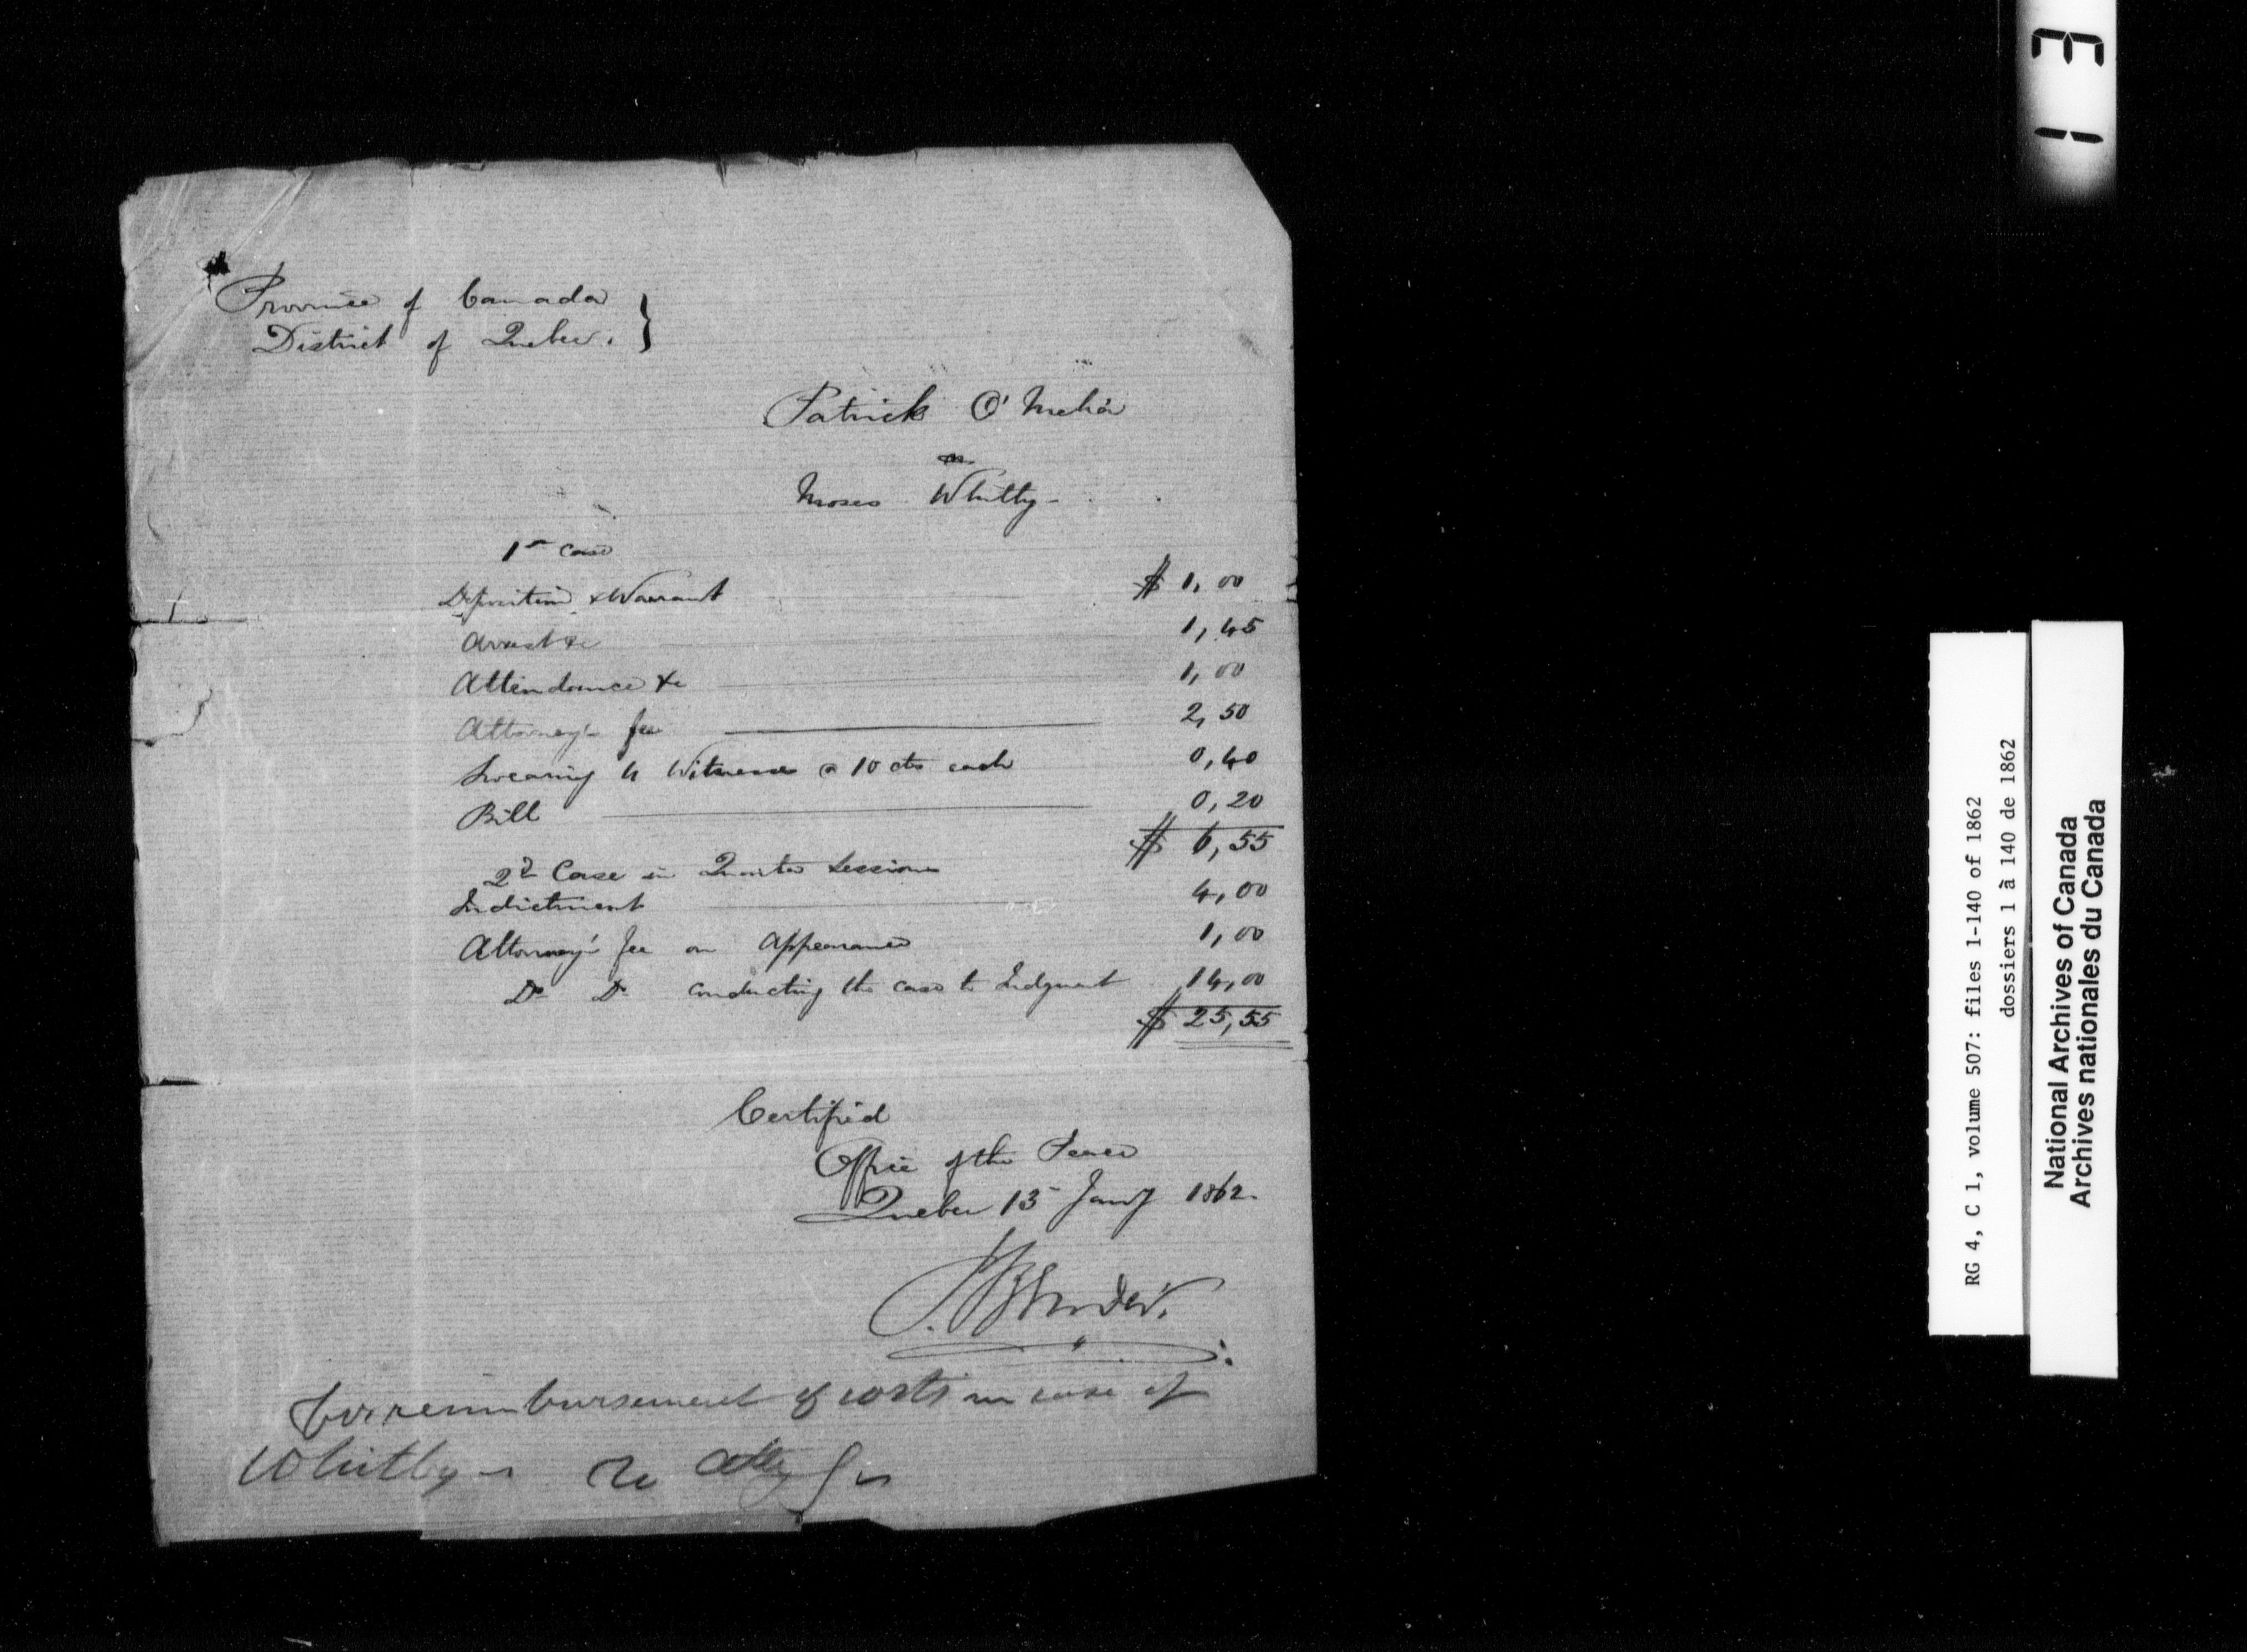 Province of Canada
District of Quebec. }
Patrick O'Meha
vs
Moses Whitty -
1st Case
Deposition & Warrant $ 1,00
Arrest &c 1,45
Attendance &c 1,00
Attorney's fee 2,50
Swearing 4 Witnesses @ 10 cts each 0,40
Bill 0,20
$ 6,55
2d Case in Quarter Sessions
Indictment 4,00
Attorney's fee on Appearance 1,00
Do Do conducting the case to Judgment 14,00
$ 25,55
Certified
Office of the Peace
Quebec 13 Jany 1862.
for reimbursement of costs in case of
Whitby
13
RG 4, C 1, volume 507: files 1-140 of 1862
dossiers 1 à 140 de 1862
National Archives of Canada
Archives nationales du Canada